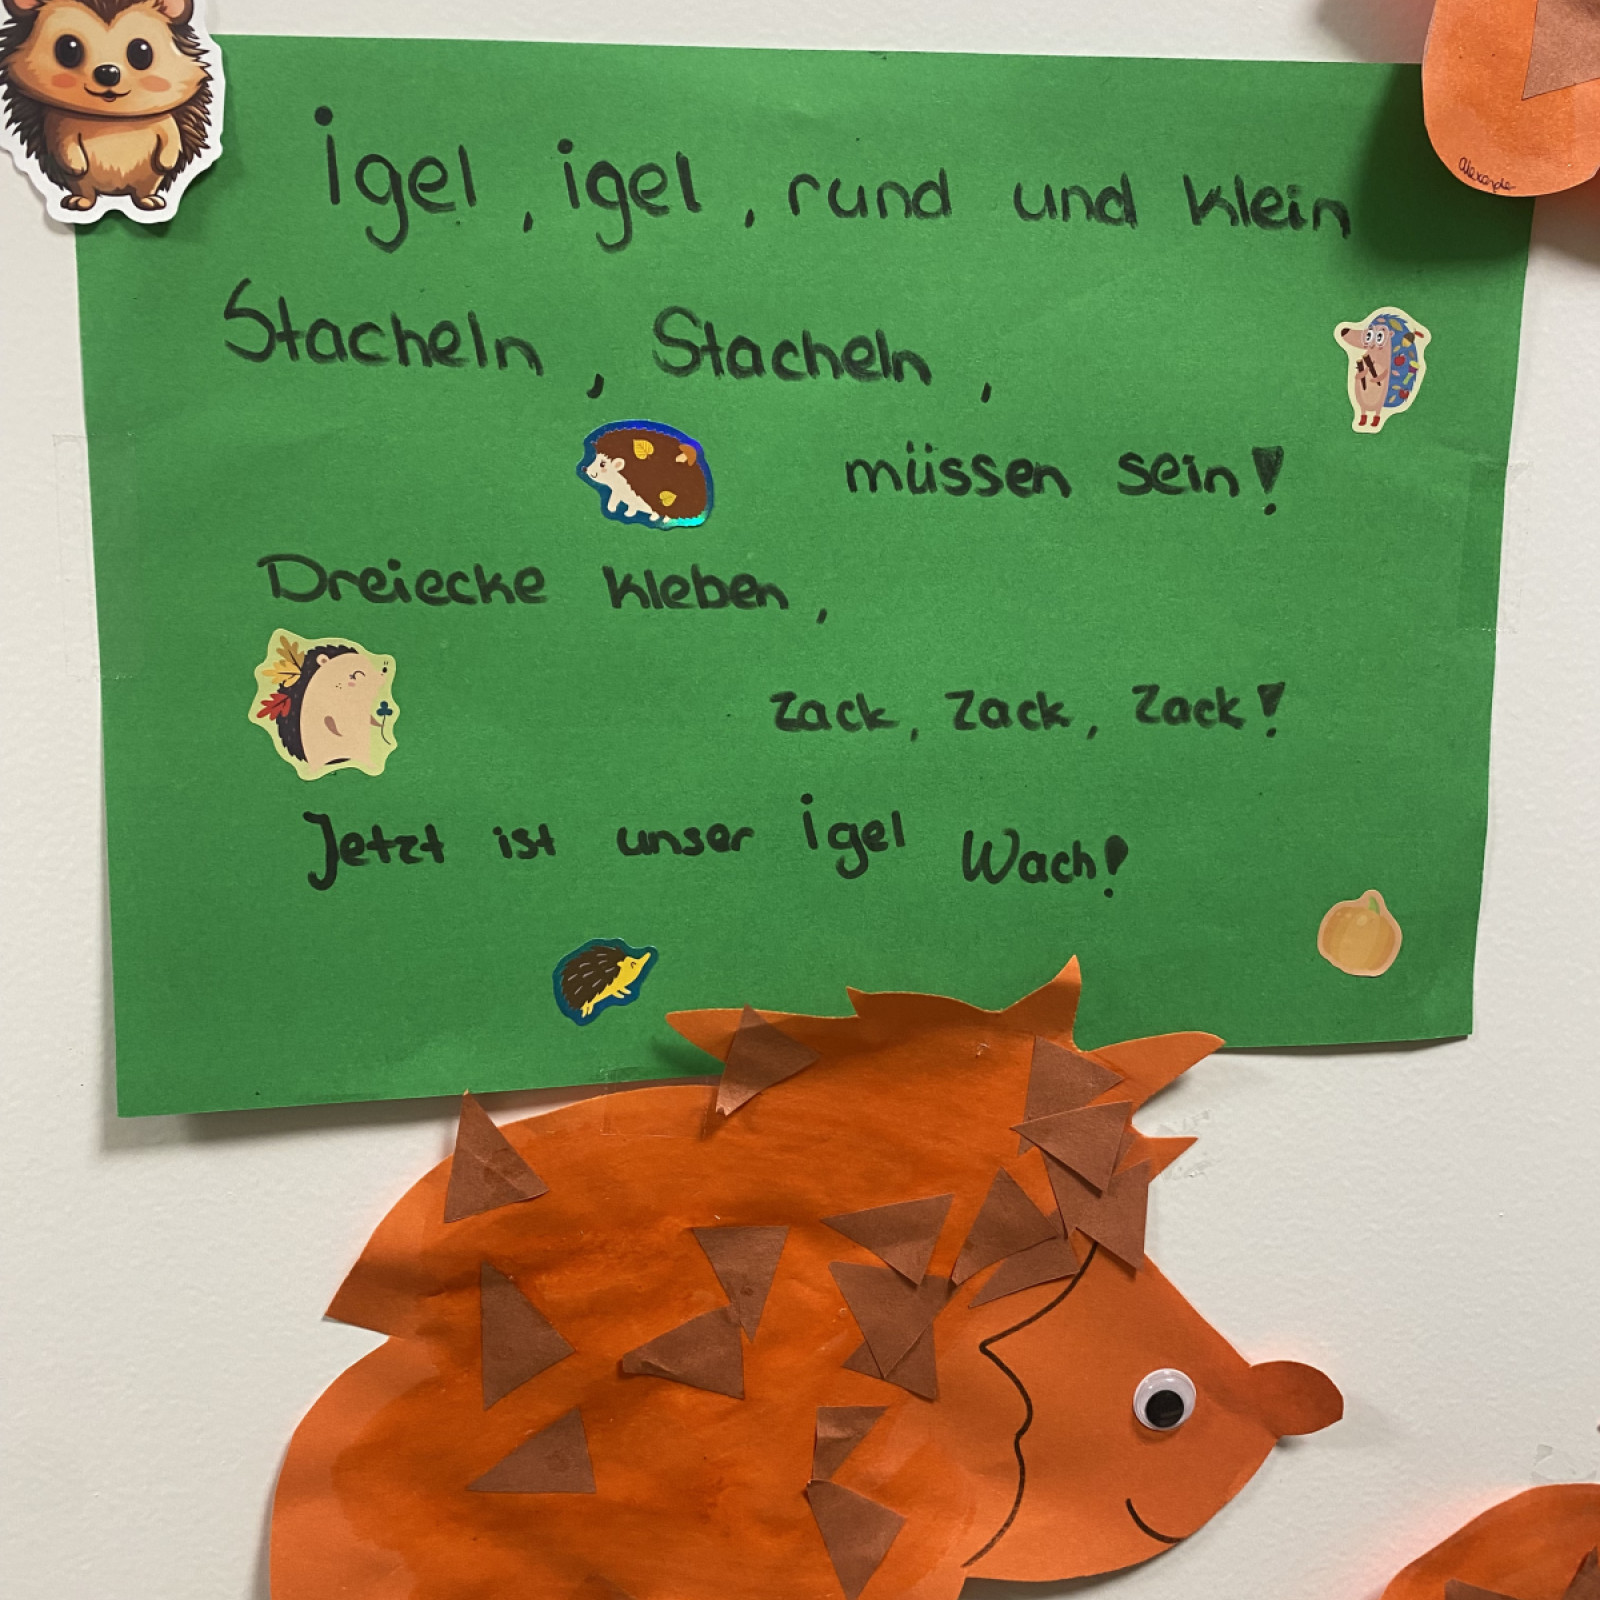 Igel, igel, rund und klein
Stacheln, Stacheln,
müssen sein!
Dreiecke kleben,
zack, zack, zack!
Jetzt ist unser igel Wach!